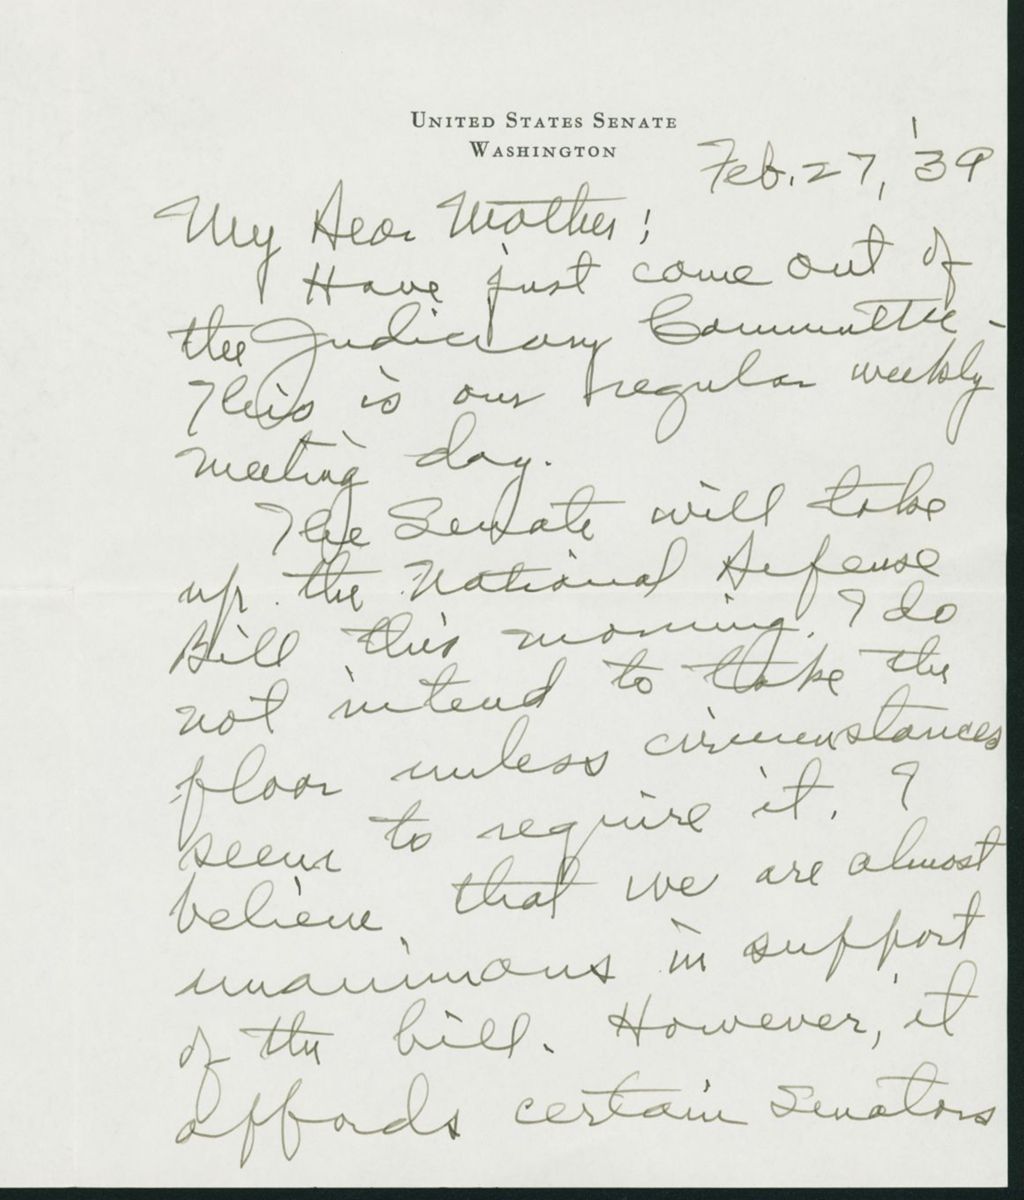 UNITED STATES SENATE
WASHINGTON
Feb. 27, '39
My Dear Mother;
Have just come out of
the Judiciary Committee -
This is our regular weekly
meeting day.
The Senate will take
up the National Defense
Bill this morning. I do
not intend to take the
floor unless circumstances
seem to require it. I
believe that we are almost
unanimous in support
of the bill. However, it
affords certain Senators